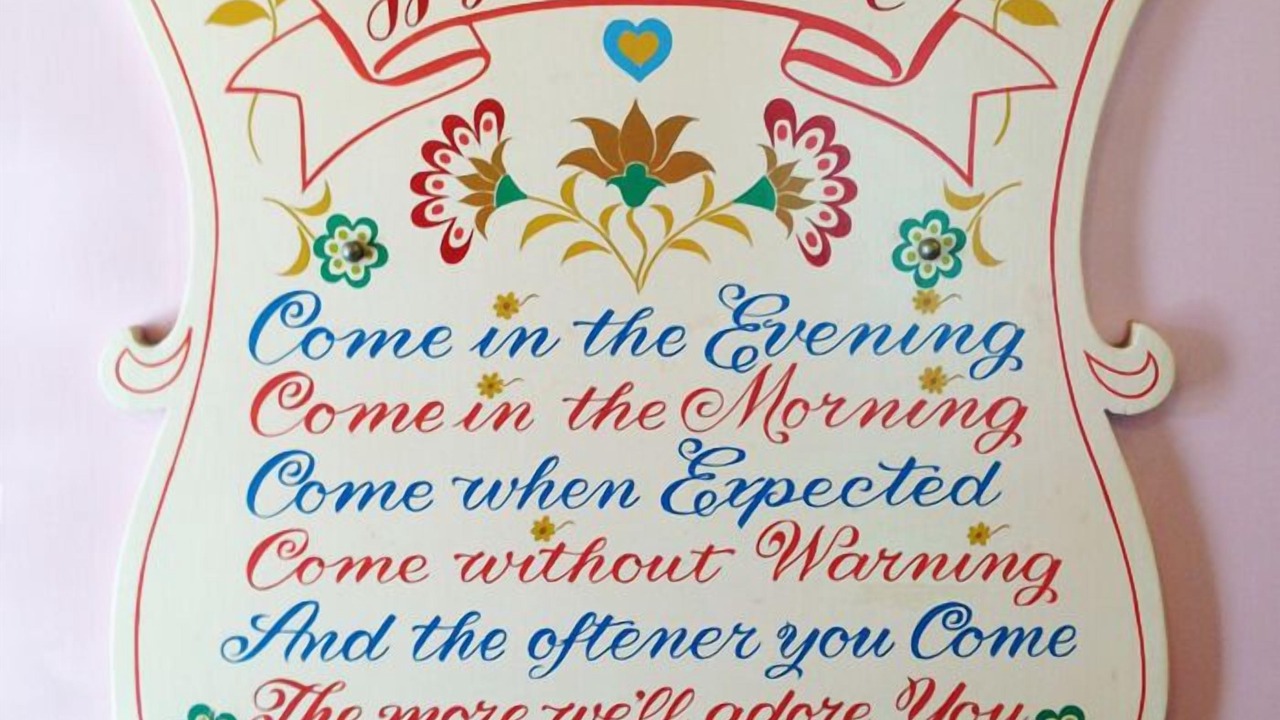 Come in the Evening
Come in the Morning
Come when Expected
Come without Warning
And the oftener you Come
The more we'll adore You